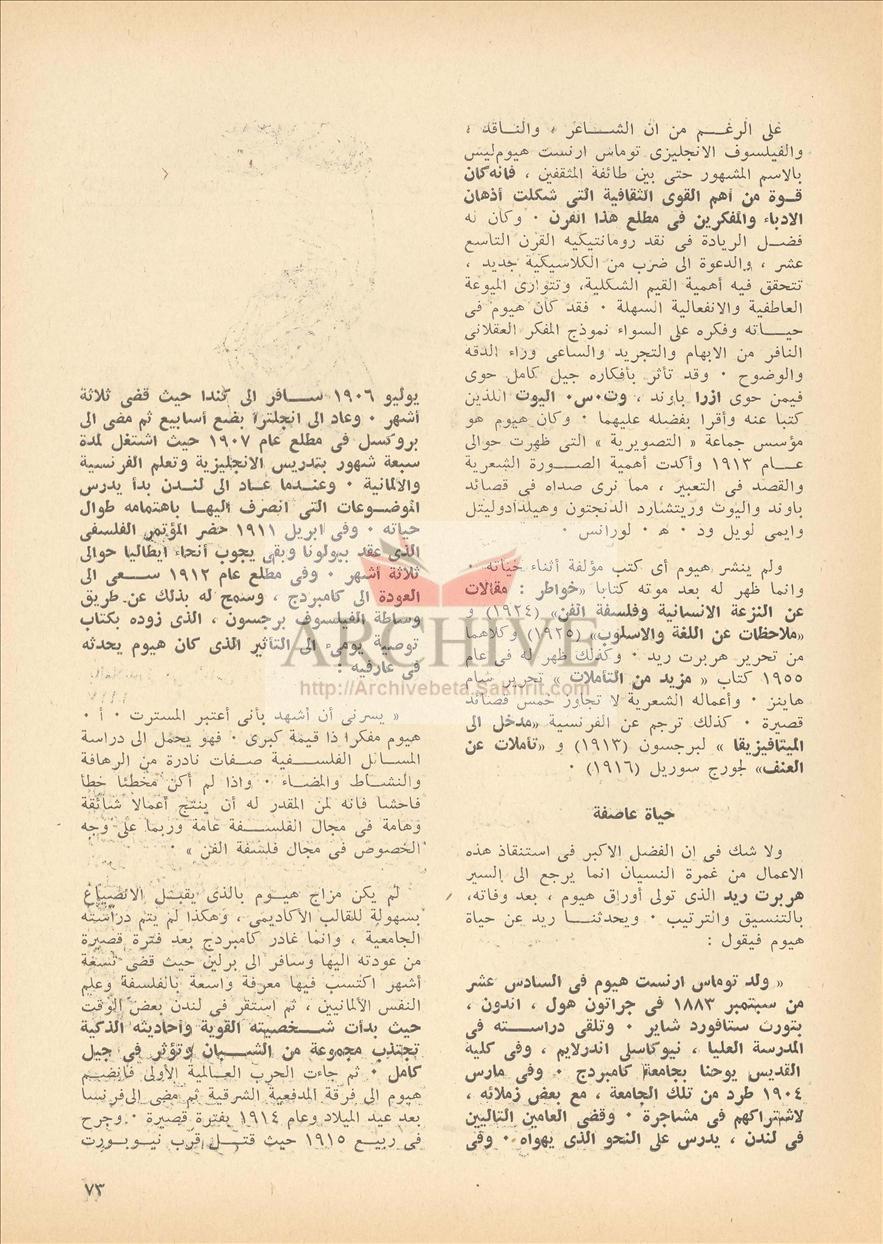 على الرغـــم من أن الشـــاعر ، والنـاقد ،
والفيلسوف الانجليزى توماس ارنست هيوم ليس
بالاسم المشهور حتى بين طائفة المثقفين ، فانه كان
قــوة من أهم القوى الثقافية التى شكلت أذهان
الادباء والمفكرين فى مطلع هذا القرن ٠ وكان له
فضــل الريادة فى نقد رومانتيكيه القرن التاسع
عشر ، والدعوة الى ضرب من الكلاسيكية جديد ،
تتحقق فيه أهمية القيم الشكلية، وتتوارى الميوعة
العاطفية والانفعالية السهلة ٠ فقد كان هيوم فى
حيــاته وفكره على السواء نموذج المفكر العقلانى
النافر من الابهام والتجريد والساعى وراء الدقه
والوضوح ٠ وقد تأثر بأفكاره جيل كامل حوى
فيمن حوى ازرا باوند ، وت٠س٠ اليوت اللذين
كتبا عنه وأقرا بفضله عليهما ٠ وكان هيوم هو
مؤسس جماعة « التصويرية » التى ظهرت حوالى
عــام ١٩١٣ وأكدت أهمية الصــورة الشعرية
والقصد فى التعبير ، مما نرى صداه فى قصائد
باوند واليوت وريتشارد الدنجتون وهيلدادوليتل
وايمى لويل ود ٠ هـ ٠ لورانس ٠
ولم ينشر هيوم أى كتب مؤلفة أثناء حياته ٠
وانما ظهر له بعد موته كتابا «خواطر : مقالات
عن النزعة الانسانية وفلسفة الفن» (١٩٢٤) و
«ملاحظات عن اللغة والاسلوب» (١٩٢٥) وكلاهما
من تحرير هربرت ريد ٠ وكذلك ظهر له فى عام
١٩٥٥ كتاب « مزيد من التأملات » تحرير سام
هاينز ٠ وأعماله الشعرية لا تجاوز خمس قصائد
قصيرة ٠ كذلك ترجم عن الفرنسية «مدخل الى
الميتافيزيقا » لبرجسون (١٩١٣) و «تأملات عن
العنف» لجورج سوريل (١٩١٦) ٠
حياة عاصفة
ولا شك فى ان الفضل الاكبر فى استنقاذ هذه
الاعمال من غمرة النسيان انما يرجع الى السير
هربرت ريد الذى تولى أوراق هيوم ، بعد وفاته،
بالتنسيق والترتيب ٠ ويحدثنــا ريد عن حياة
هيوم فيقول :
« ولد توماس ارنست هيوم فى السادس عشر
من سبتمبر ١٨٨٣ فى جراتون هول ، اندون ،
بنورث ستافورد شاير ٠ وتلقى دراســته فى
المدرسة العليا ، نيوكاسلى اندرلايم ، وفى كلية
القديس يوحنا بجامعة كامبردج ٠ وفى مارس
١٩٠٤ طرد من تلك الجامعة ، مع بعض زملائه ،
لاشتراكهم فى مشاجرة ٠ وقضى العامين التاليين
فى لندن ، يدرس على النحو الذى يهواه ٠ وفى
يوليو ١٩٠٦ ســـافر الى كندا حيث قضى ثلاثة
أشهر ٠ وعاد الى انجلترا بضع أسابيع ثم مضى الى
بروكسل فى مطلع عام ١٩٠٧ حيث اشتغل لمدة
سبعة شهور بتدريس الانجليزية وتعلم الفرنسية
والالمانية ٠ وعندمـا عـاد الى لنـدن بدأ يدرس
الموضــوعات التى انصرف اليهـا باهتمامه طوال
حياته ٠ وفى ابريل ١٩١١ حضر المؤتمر الفلسفى
الذى عقد ببولونا وبقى يجوب أنحاء ايطاليا حوالى
ثلاثة أشهر ٠ وفى مطلع عام ١٩١٢ ســعى الى
العودة الى كامبردج ، وسمح له بذلك عن طريق
وساطة الفيلسوف برجسون ، الذى زوده بكتاب
توصية يومىء الى التأثير الذى كان هيوم يحدثه
فى عارفيه :
« يسرنى أن أشهد بأنى أعتبر المستر ت ٠ أ ٠
هيوم مفكرا ذا قيمة كبرى ٠ فهو يحمل الى دراسة
المسـائل الفلســفية صفـات نادرة من الرهافة
والنشـاط والمضـاء ٠ واذا لم أكن مخطئا خطأ
فاحشا فانه لمن المقدر له أن ينتج أعمالا شائقة
وهامة فى مجال الفلســفة عامة وربما على وجه
الخصوص فى مجال فلسفة الفن » ٠
لم يكن مزاج هيــوم بالذى يقبــل الانصياع
بسهولة للقالب الأكاديمى ، وهكذا لم يتم دراسته
الجامعية ، وانما غادر كامبردج بعد فترة قصيرة
من عودته اليها وسافر الى برلين حيث قضى تسعة
أشهر اكتسب فيها معرفة واسعة بالفلسفة وعلم
النفس الالمانيين ، ثم استقر فى لندن بعض الوقت
حيث بدأت شــخصيته القوية وأحاديثه الذكية
تجتذب مجموعة من الشــبان وتؤثر فى جيل
كامل ٠ ثم جاءت الحرب العـالمية الأولى فانضـم
هيوم الى فرقة المدفعية الشرقية ثم مضى الى فرنسا
بعد عيد الميلاد وعام ١٩١٤ بفترة قصيرة ٠ وجرح
فى ربيع ١٩١٥ حيث قتــل قرب نيــوبورت
٧٣
ARCHIVE
http://Archivebeta.Sakhrit.com